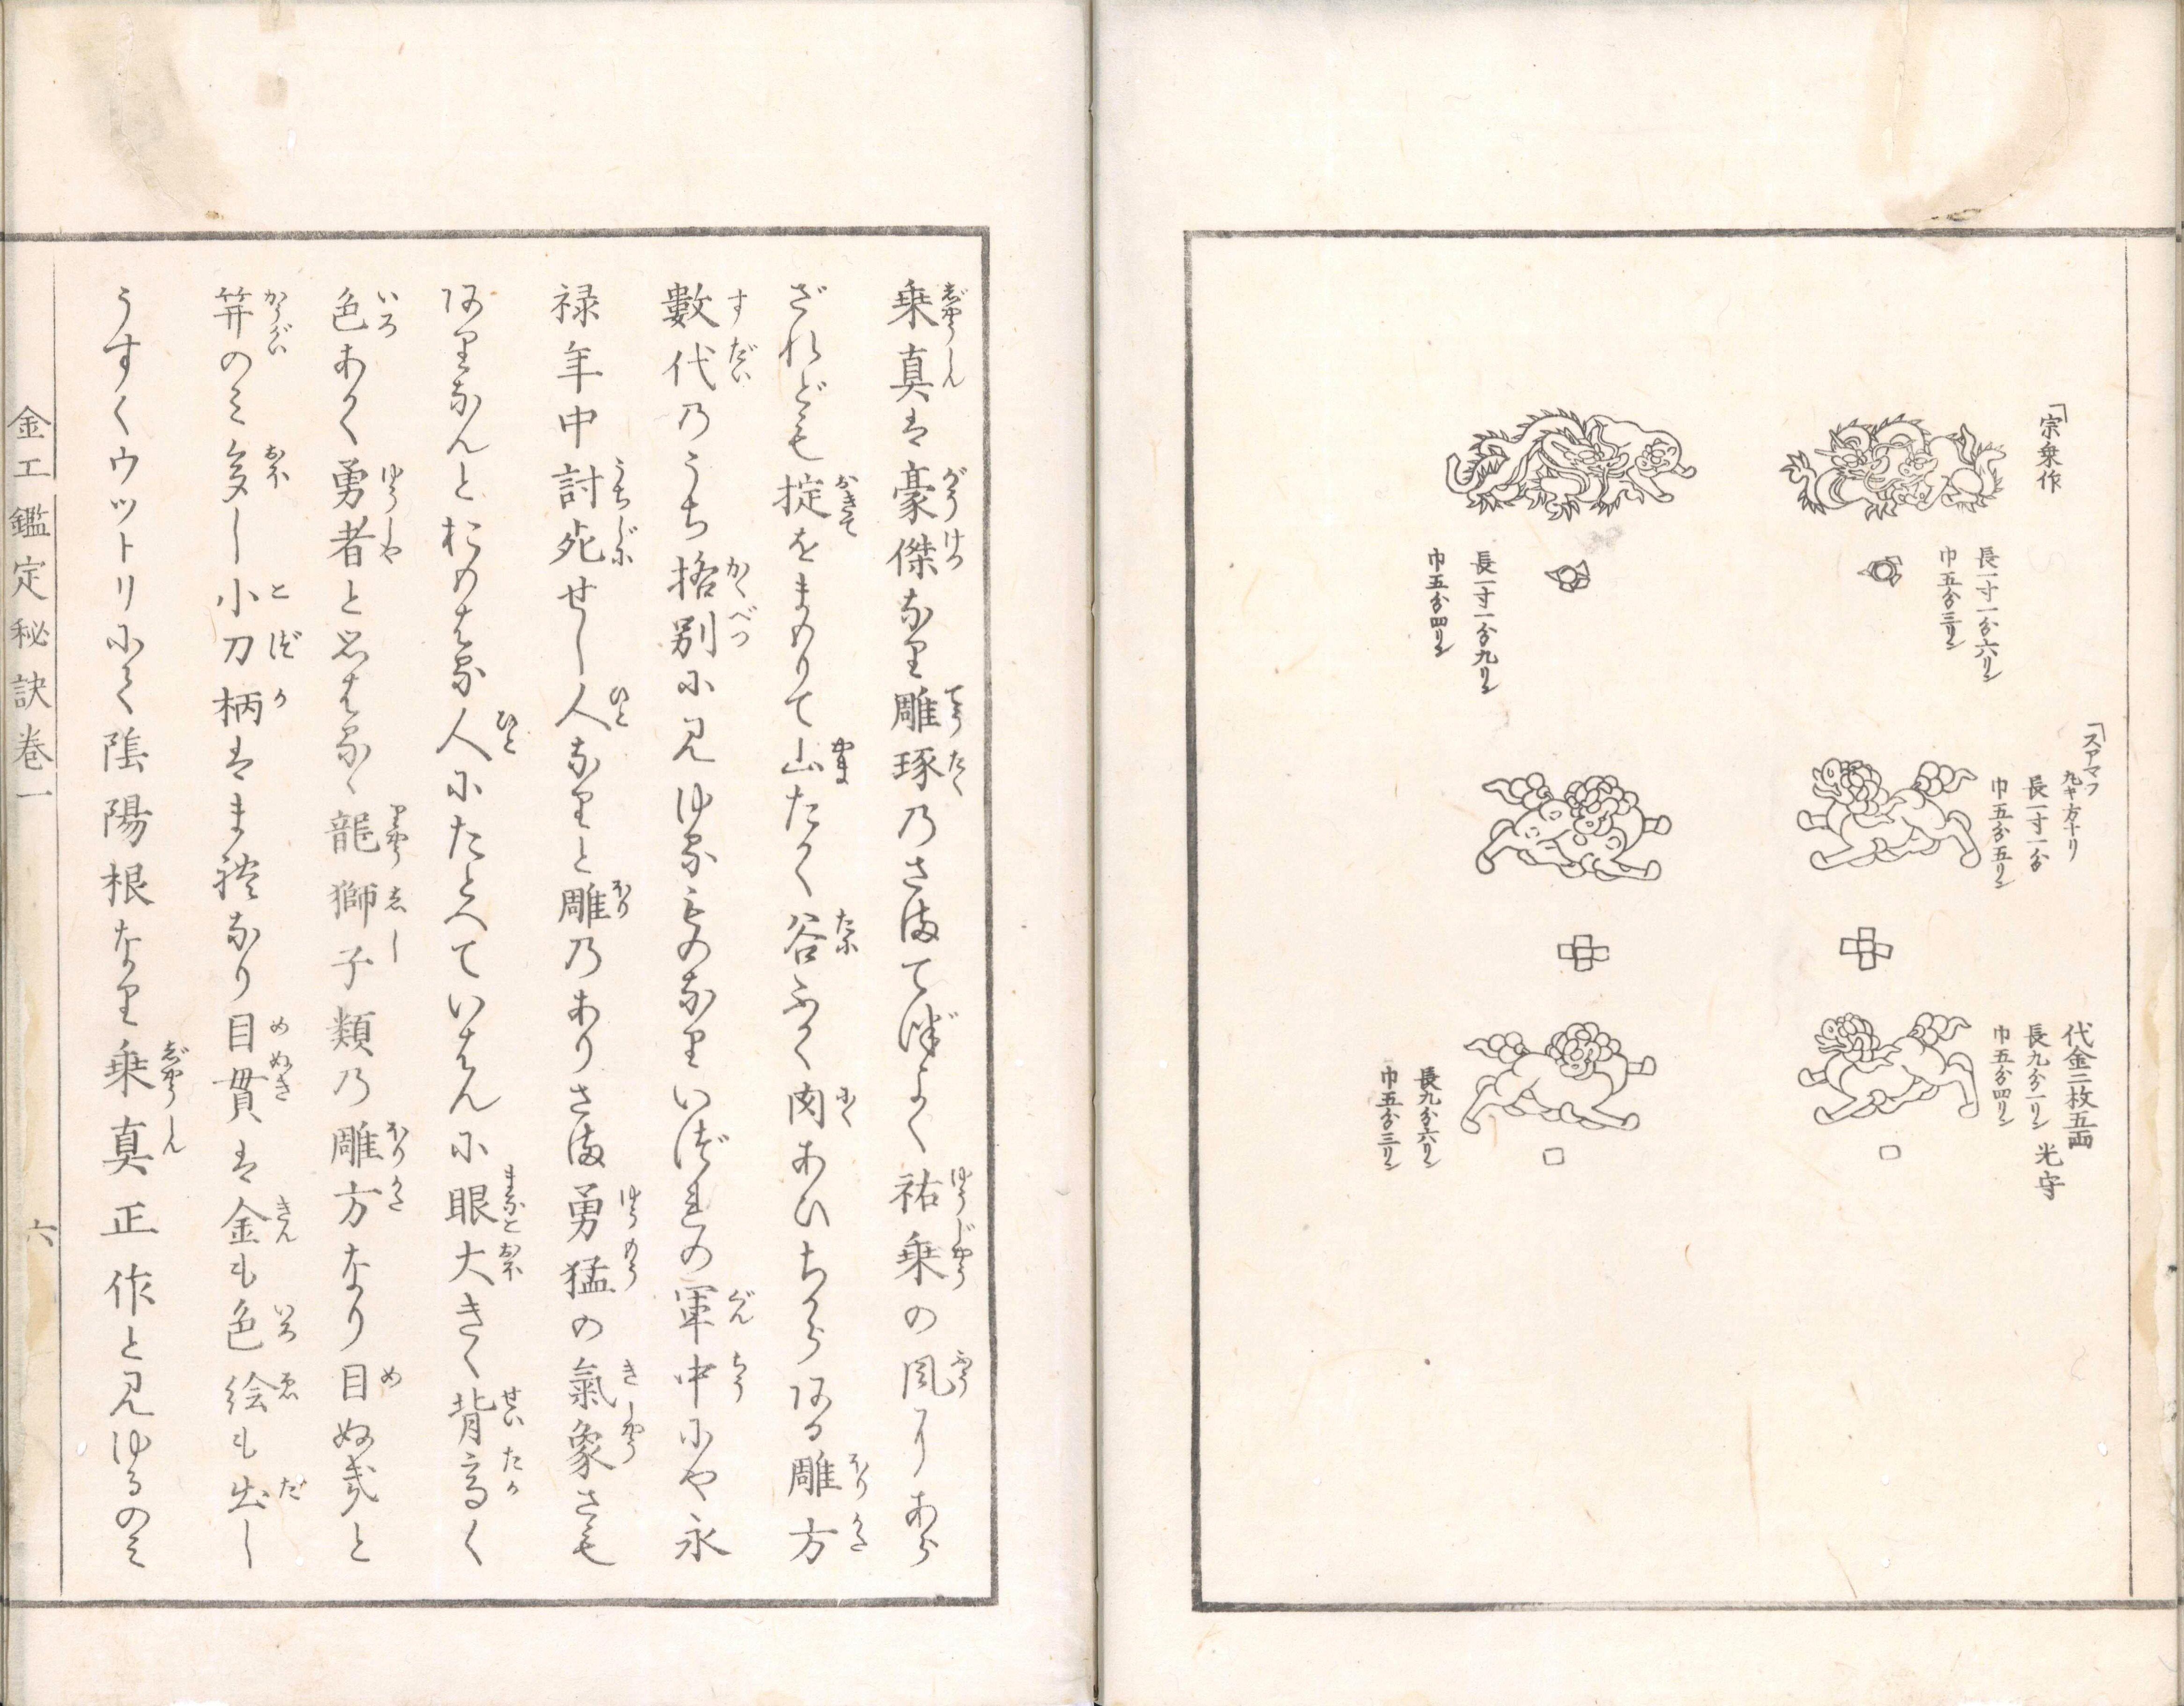 「宗乗作
長一寸一分六リン
巾五分三リン
長一寸一分九リン
巾五分四リン
「スアマフ
九キ方ナリ
長一寸一分
巾五分五リン
代金二枚五両
光守
長九分一リン
巾五分四リン
長九分六リン
巾五分三リン
乗真は豪傑なり雕琢乃さまてぎはよく祐乗の風にあら
ざれども掟をまもりて山たかく谷ふかく肉あひちからある雕方
數代乃うち挌別に見ゆるものなりいづれの軍中にや永
禄年中討死せし人なりと雕乃ありさま勇猛の氣象さも
ありなんとおもはる人にたとへていはんに眼大きく背高く
色あかく勇者と思はるゝ龍獅子類乃雕方なり目ぬきと
笄のミ多し小刀柄はまれなり目貫は金も色絵も出し
うすくウットリにて陰陽根なり乗真正作と見ゆるのミ
金工鑑定秘訣巻一
六